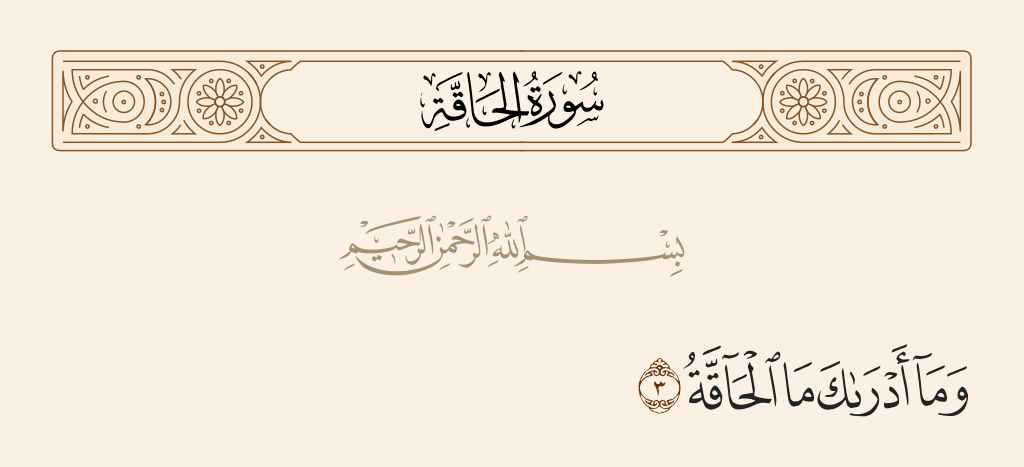 سُورَةُ الحَاقَّةِ
بِسْمِ ٱللَّهِ ٱلرَّحْمَٰنِ ٱلرَّحِيمِ
وَمَآ أَدْرَىٰكَ مَا ٱلْحَآقَّةُ ٣